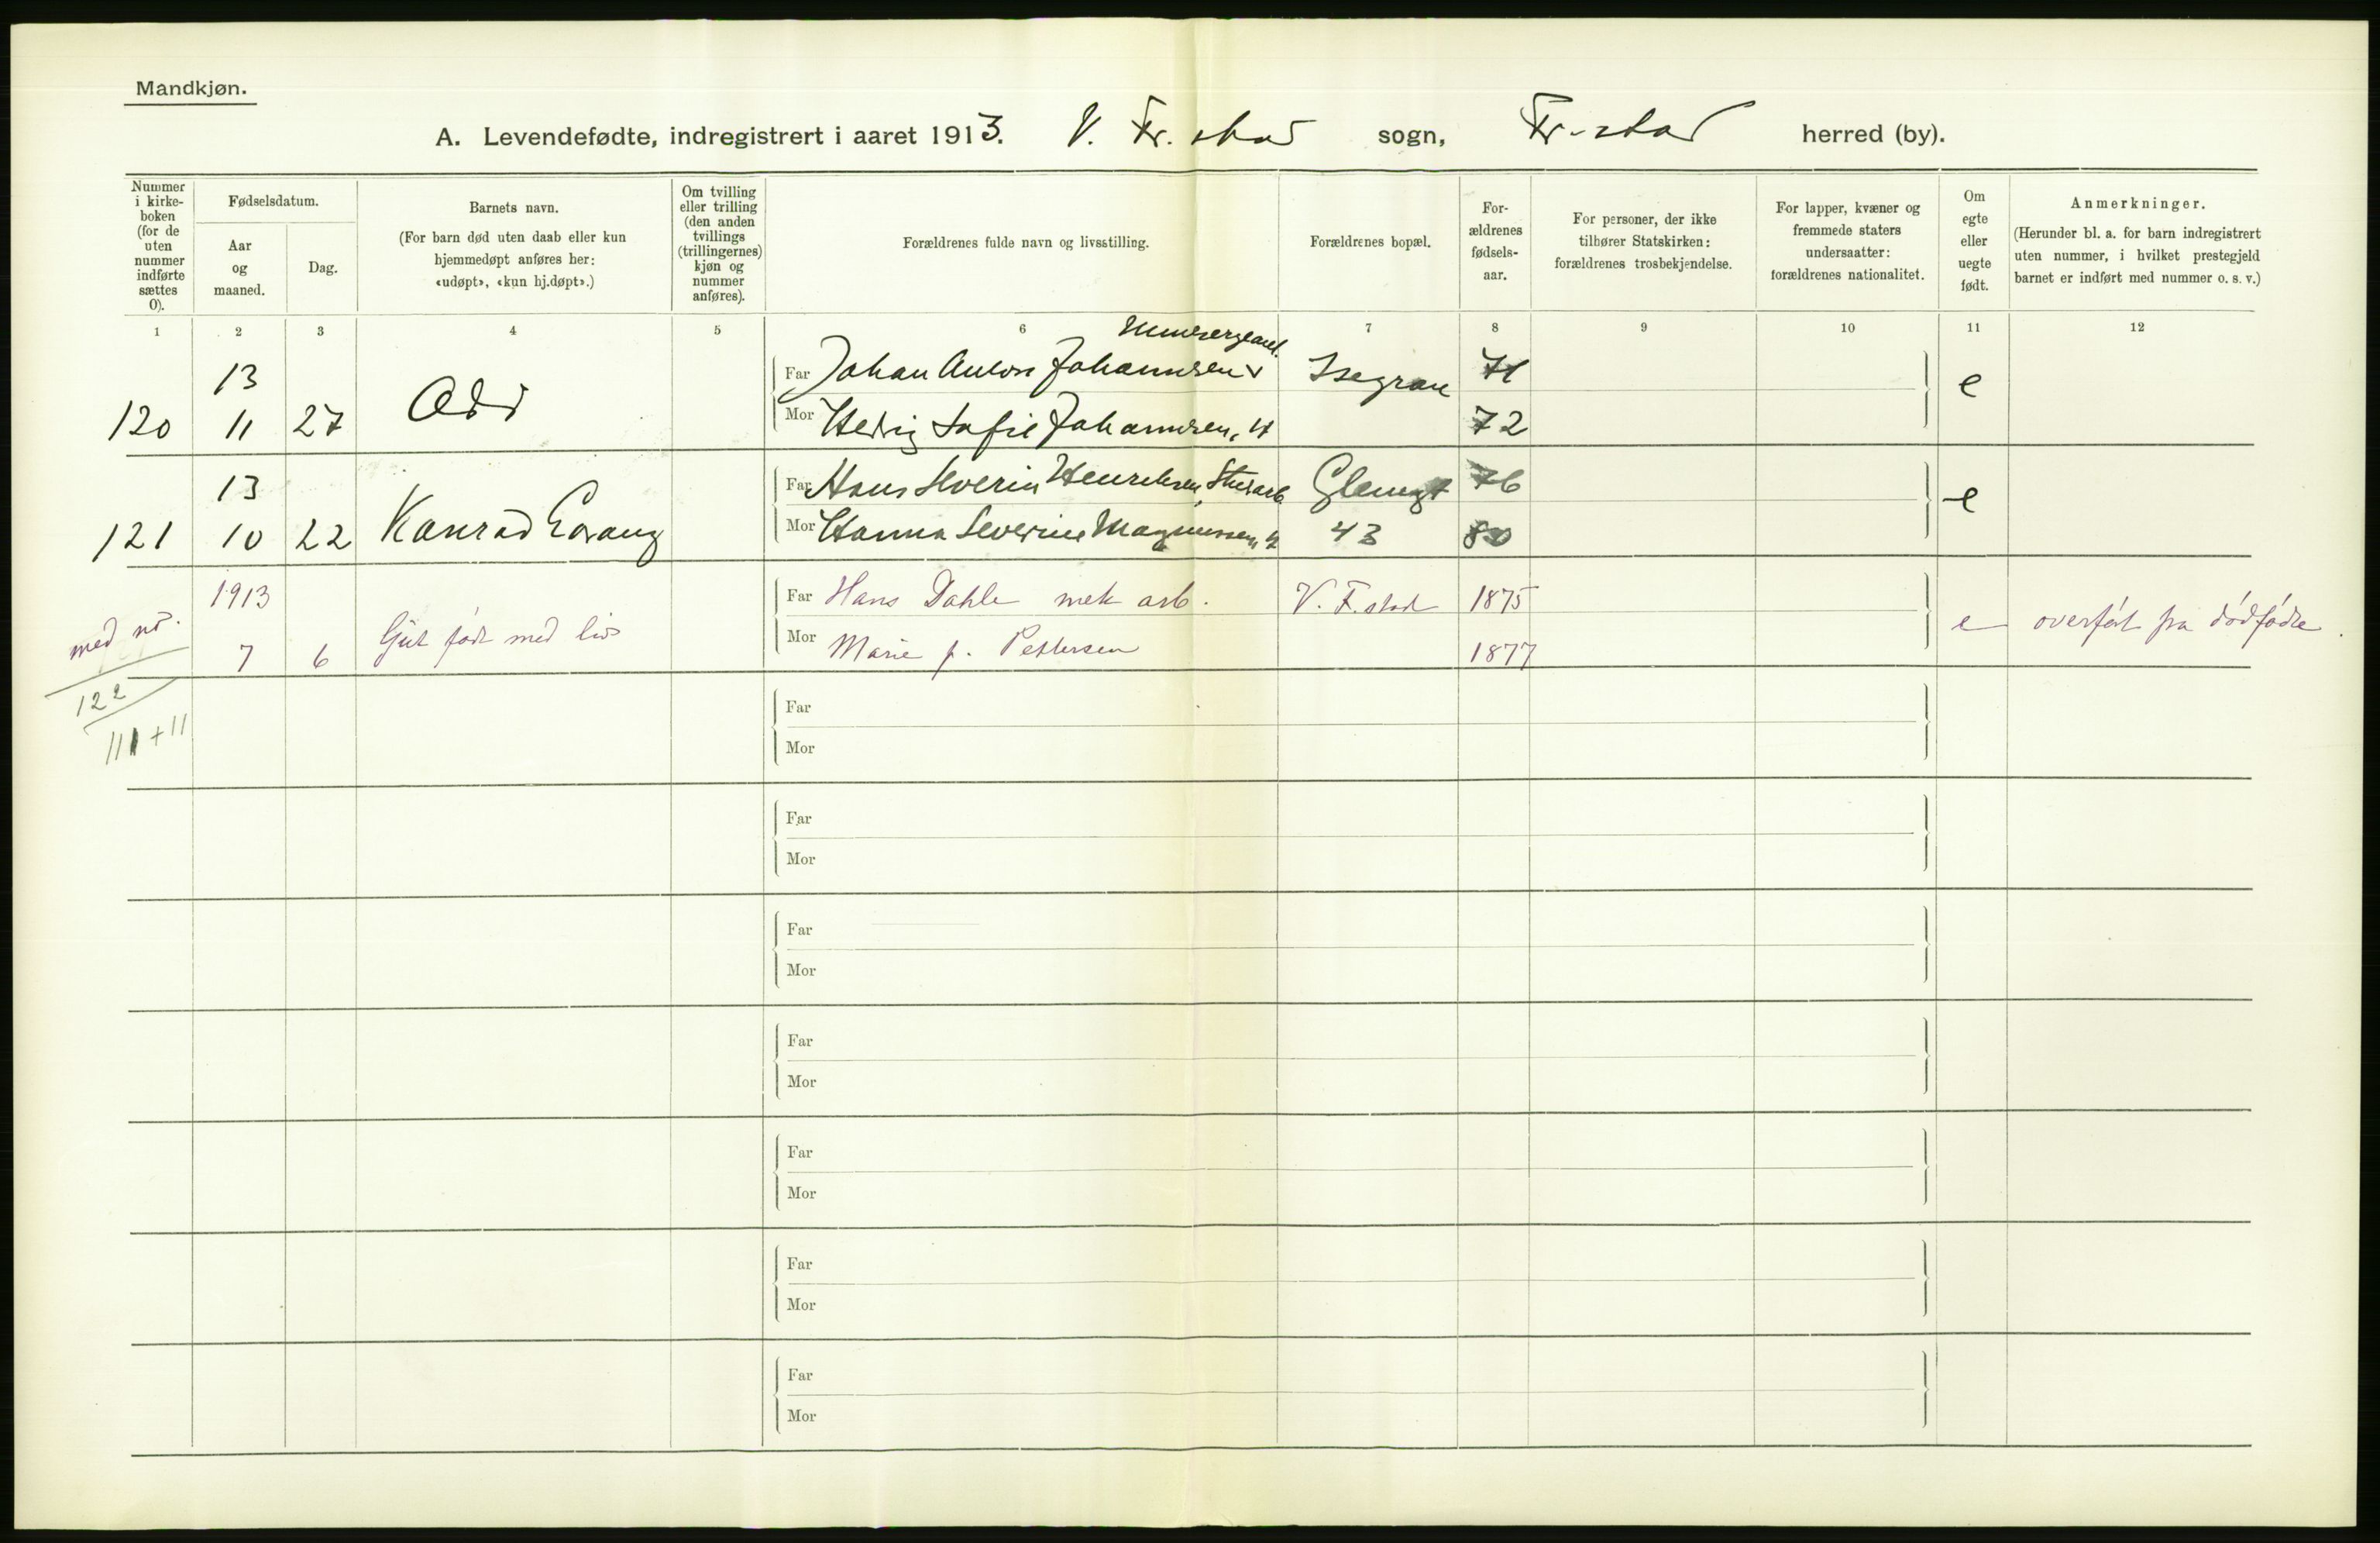 Mandkjøn.
A. Levendefødte, indregistrert i aaret 1913. V. Fr.stad sogn, Fr-stad herred (by).
Nummer i kirke-boken (for de uten nummer indførte sættes 0).
Fødselsdatum.
Aar og maaned.
Dag.
Barnets navn.
(For barn død uten daab eller kun hjemmedøpt anføres her: «udøpt», «kun hj.døpt».)
Om tvilling eller trilling (den anden tvillings (trillingernes) kjøn og nummer anføres).
Forældrenes fulde navn og livsstilling.
Forældrenes bopæl.
For-ældrenes fødsels-aar.
For personer, der ikke tilhører Statskirken: forældrenes trosbekjendelse.
For lapper, kvæner og fremmede staters undersaatter: forældrenes nationalitet.
Om egte eller uegte født.
Anmerkninger.
(Herunder bl. a. for barn indregistrert uten nummer, i hvilket prestegjeld barnet er indført med nummer o. s. v.)
1 2 3 4 5 6 7 8 9 10 11 12
13 Far Johan Anton Johannsen Isegran 71 e
120 11 27 Odd Mor Hedvig Sofie Johannsen, H 72
13 Far Hans Severin Henriksen, Glemgt 76 e
121 10 22 Konrad Edvang Mor Hanna Severine Magnussen, H 43 80
1913 Far Hans Dahle mek arb. V. F.stad 1875
med nr. 7 6 Gut født med liv Mor Marie f. Pettersen 1877 e overført fra dødfødte.
122
111 + 11
Far
Mor
Far
Mor
Far
Mor
Far
Mor
Far
Mor
Far
Mor
Far
Mor